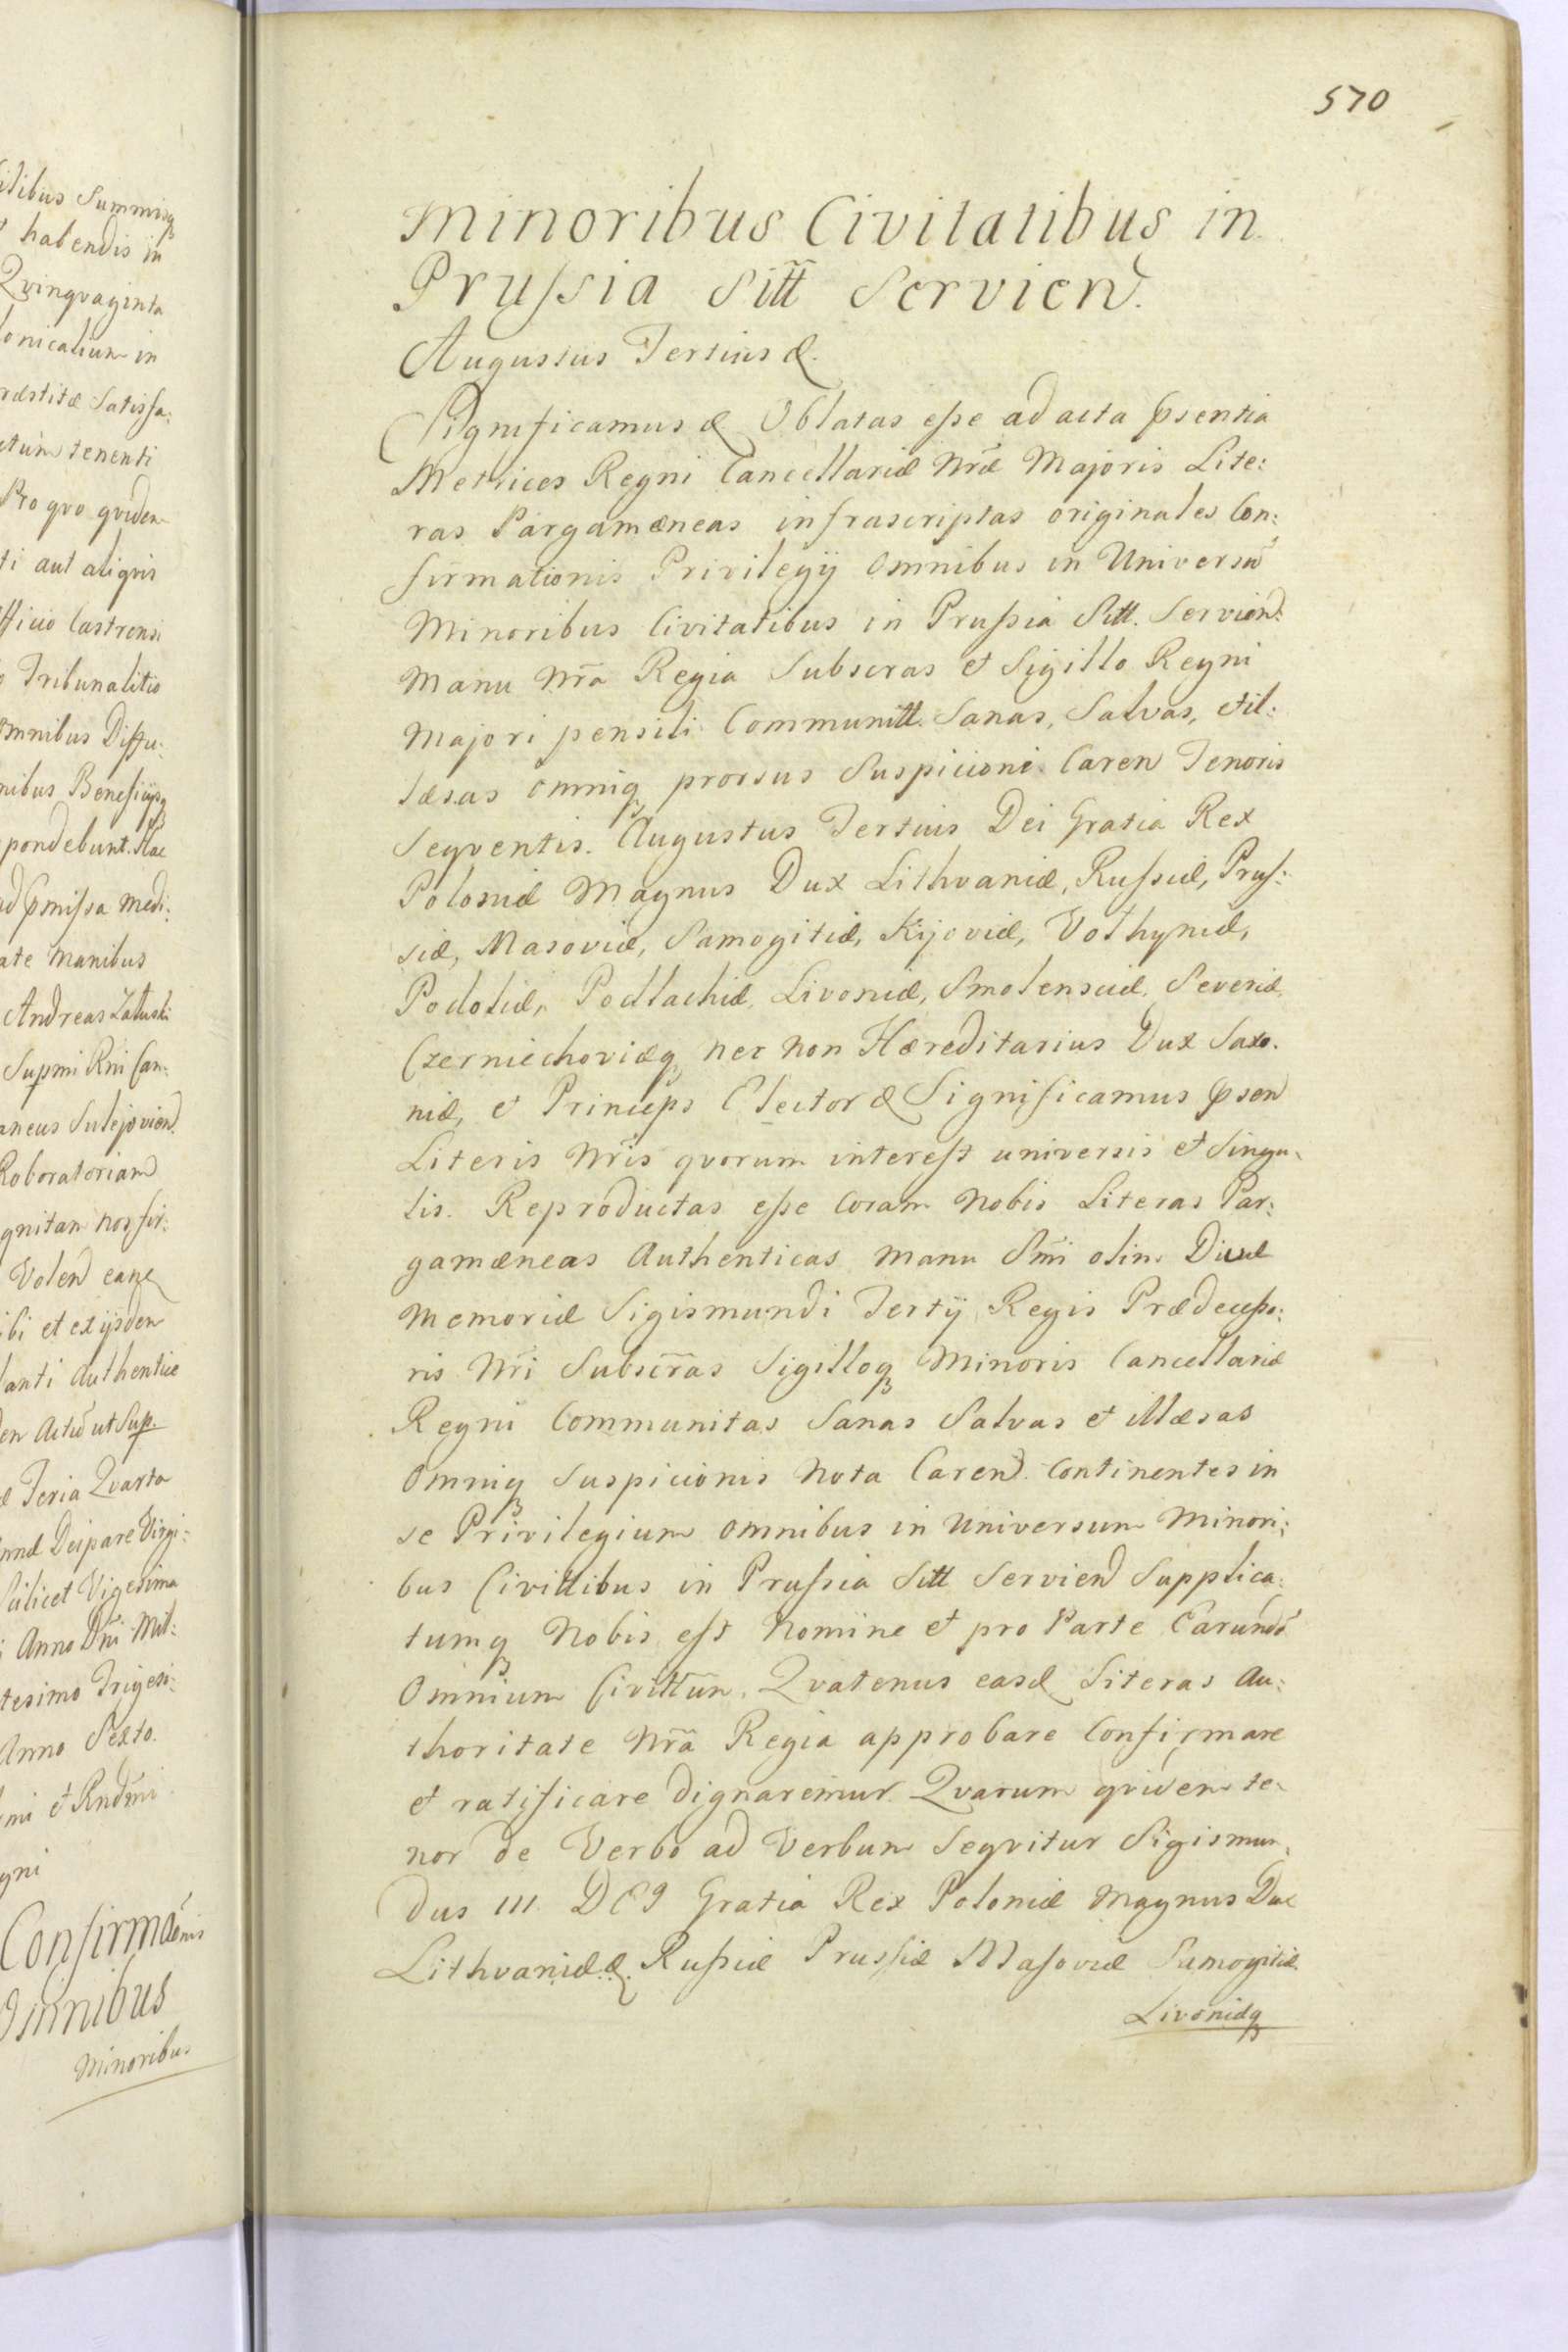 itibus Summisq
habendis in
Qvinqvaginta
onicalium in
ræstitæ Satisfa:
ctum tenenti
Pro qvo qvidem
ti aut aliqvis
fficio Castrensi
Tribunalitio
omnibus Diffu:
nibus Beneficijsq
pondebunt. Hac
ad pmissa Medi:
ate Manibus
Andreas Załuski
Supmi Rni Can:
aneus Sulejovien.
Roboratoriam
gnitam nos fir:
Volen eang
ibi et ex ijsdem
lanti Authentice
den Actu ut Sup.
Feria Qvarta
nnæ Deiparæ Virgi:
Scilicet Vigesima
Anno Dni Mil:
tesimo Trigesi:
Anno Sexto.
mi et Rndmi
gni
Confirmãonis
Omnibus
Minoribus
570
Minoribus Civitatibus in
Prussia Sitt Servien.
Augustus Tertius &.
Significamus & Oblatas esse ad acta psentia
Metrices Regni Cancellariæ Nr̃æ Majoris Lite:
ras Pargamæneas infrascriptas originales Con:
firmationis Privilegij Omnibus in Universũ
Minoribus Civitatibus in Prussia Sitt. Servien:
Manu Nr̃a Regia Subscras et Sigillo Regni
Majori pensili Communitt. Sanas, Salvas, et il:
læsas omniq prorsus Suspicioni Caren Tenoris
Seqventis. Augustus Tertius Dei Gratia Rex
Poloniæ Magnus Dux Lithvaniæ, Russiæ, Prus:
siæ, Masoviæ, Samogitiæ, Kijoviæ, Volhyniæ,
Podoliæ, Podlachiæ, Livoniæ, Smolensciæ, Severiæ,
Czerniechoviæq, nec non Hæreditarius Dux Saxo:
niæ, et Princeps Elector & Significamus psen
Literis Nr̃is qvorum interest universis et Singu:
lis. Reproductas esse Coram Nobis Literas Par:
gamæneas Authenticas Manu Smi olim Divæ
Memoriæ Sigismundi Tertij Regis Prædecesso:
ris Nr̃i Subscr̃as Sigilloq Minoris Cancellariæ
Regni Communitas Sanas Salvas et illæsas
Omniq Suspicionis Nota Caren. Continentes in
se Privilegium omnibus in Universum Minori:
bus Civittibus in Prussia Sitt Servien Supplica:
tumq Nobis est Nomine et pro Parte Earundẽ
Omnium Civittũm. Qvatenus easd Literas Au:
thoritate Nr̃a Regia approbare Confirmare
et ratificare dignaremur. Qvarum qvidem te:
nor de Verbo ad Verbum Seqvitur Sigismun:
dus III. DEI Gratia Rex Poloniæ Magnus Dux
Lithvaniæ &. Russiæ Prussiæ Masoviæ Samogitiæ
Livoniæq